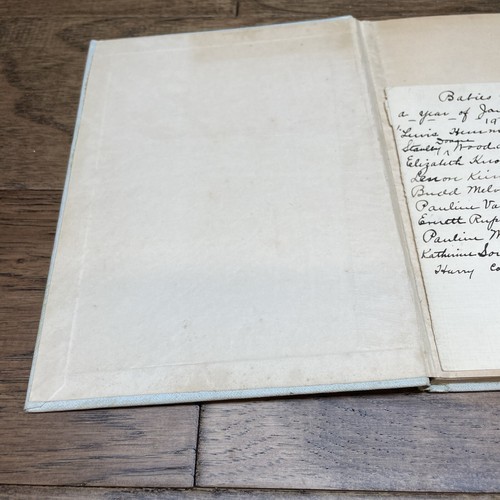 Babies
a year of Jan
19
"Lewis Hemm
Stanley Doane Wooda
Elizabeth Kno
Lenon Kin
Budd Melv
Pauline Va
Everett Rup
Pauline M
Katherine Sor
Harry Co